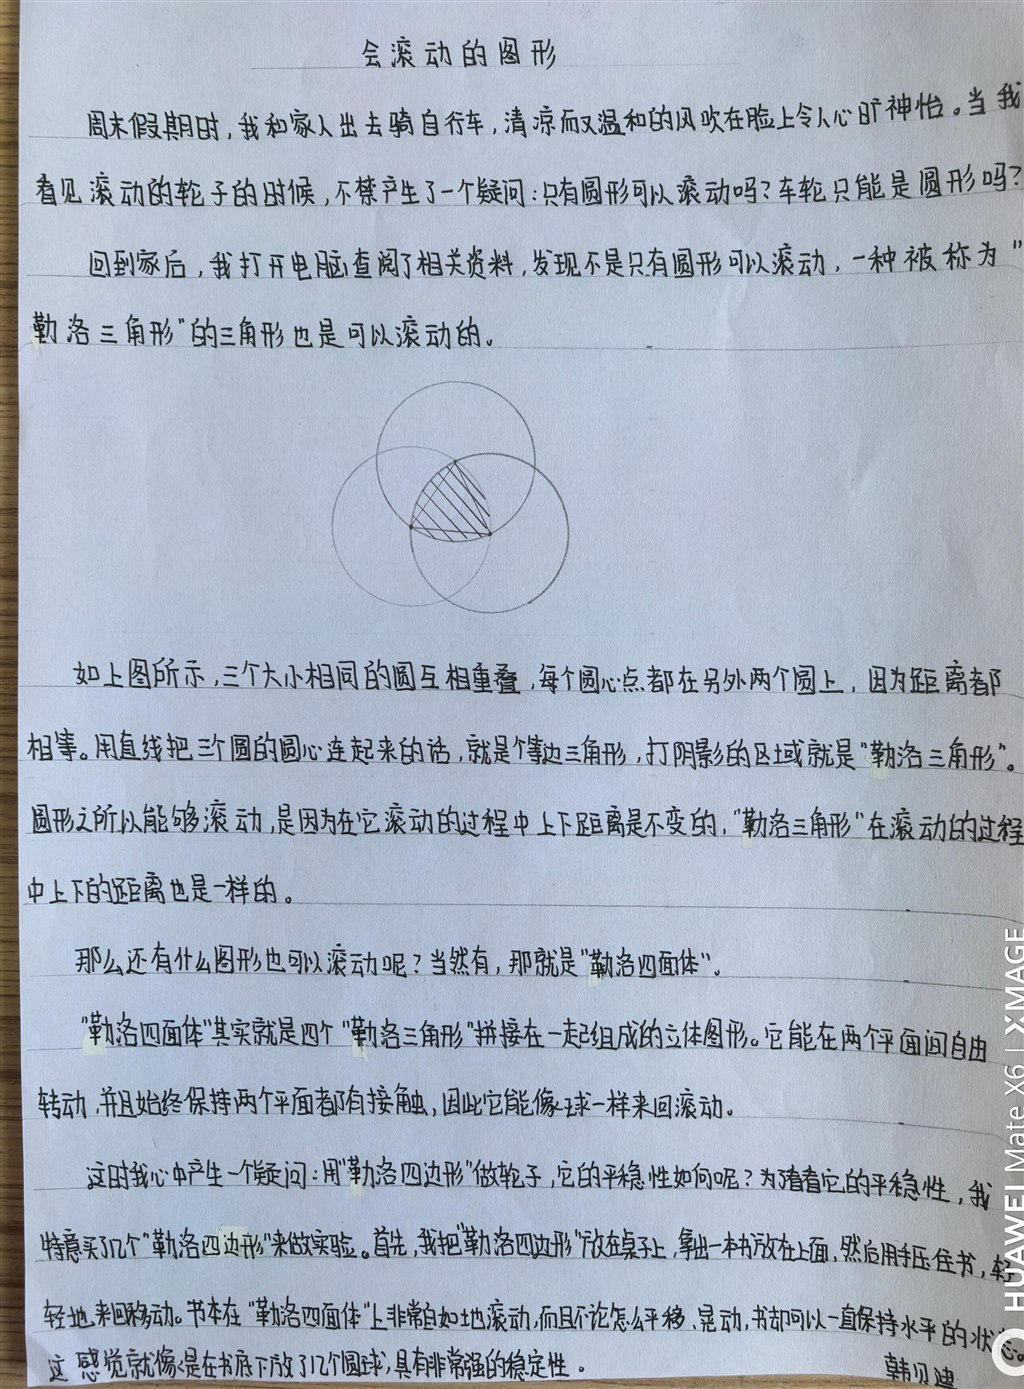 会滚动的图形
周末假期时，我和家人出去骑自行车，清凉而又温和的风吹在脸上令人心旷神怡。当我
看见滚动的轮子的时候，不禁产生了一个疑问：只有圆形可以滚动吗？车轮只能是圆形吗？
回到家后，我打开电脑查阅了相关资料，发现不是只有圆形可以滚动，一种被称为"
勒洛三角形"的三角形也是可以滚动的。
如上图所示，三个大小相同的圆互相重叠，每个圆心点都在另外两个圆上，因为距离都
相等。用直线把三个圆的圆心连起来的话，就是个等边三角形，打阴影的区域就是"勒洛三角形"。
圆形之所以能够滚动，是因为在它滚动的过程中上下距离是不变的，"勒洛三角形"在滚动的过程
中上下的距离也是一样的。
那么还有什么图形也可以滚动呢？当然有，那就是"勒洛四面体"。
"勒洛四面体"其实就是四个"勒洛三角形"拼接在一起组成的立体图形。它能在两个平面间自由
转动，并且始终保持两个平面都有接触，因此它能像球一样来回滚动。
这时我心中产生一个疑问：用"勒洛四边形"做轮子，它的平稳性如何呢？为了看看它的平稳性，我
特意买了几个"勒洛四边形"来做实验。首先，我把"勒洛四边形"放在桌子上，拿出一本书放在上面，然后用手压住书，轻
轻地来回移动。书本在"勒洛四面体"上非常自如地滚动，而且不论怎么平移、晃动，书却可以一直保持水平的状态。
这感觉就像是在书底下放了几个圆球，具有非常强的稳定性。
韩贝
HUAWEI Mate X6 | XMAGE